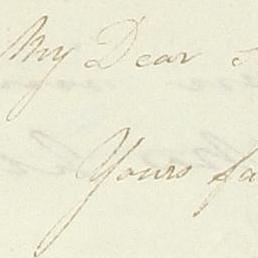 My Dear
Yours